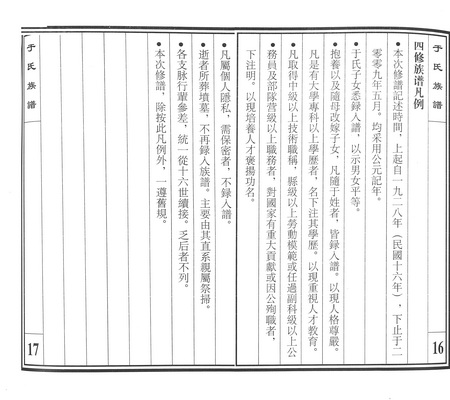 于氏族譜
16
四修族谱凡例
•本次修譜記述時間，上起自一九二八年（民國十六年），下止于二
零零九年五月。均采用公元記年。
•于氏子女悉録入譜，以示男女平等。
•抱養以及隨母改嫁子女，凡隨于姓者，皆録入譜。以現人格尊嚴。
•凡是有大學專科以上學歷者，名下注其學歷。以現重視人才教育。
•凡取得中級以上技術職稱，縣級以上勞動模範或任過副科級以上公
務員及部隊营級以上職務者，對國家有重大貢獻或因公殉職者，
下注明。以現培養人才褒揚功名。
•凡屬個人隱私，需保密者，不録入譜。
•逝者所葬墳墓，不再録入族譜。主要由其直系親屬祭掃。
•各支脉行輩參差，統一從十六世續接。乏后者不列。
•本次修譜，除按此凡例外，一遵舊規。
于氏族譜
17